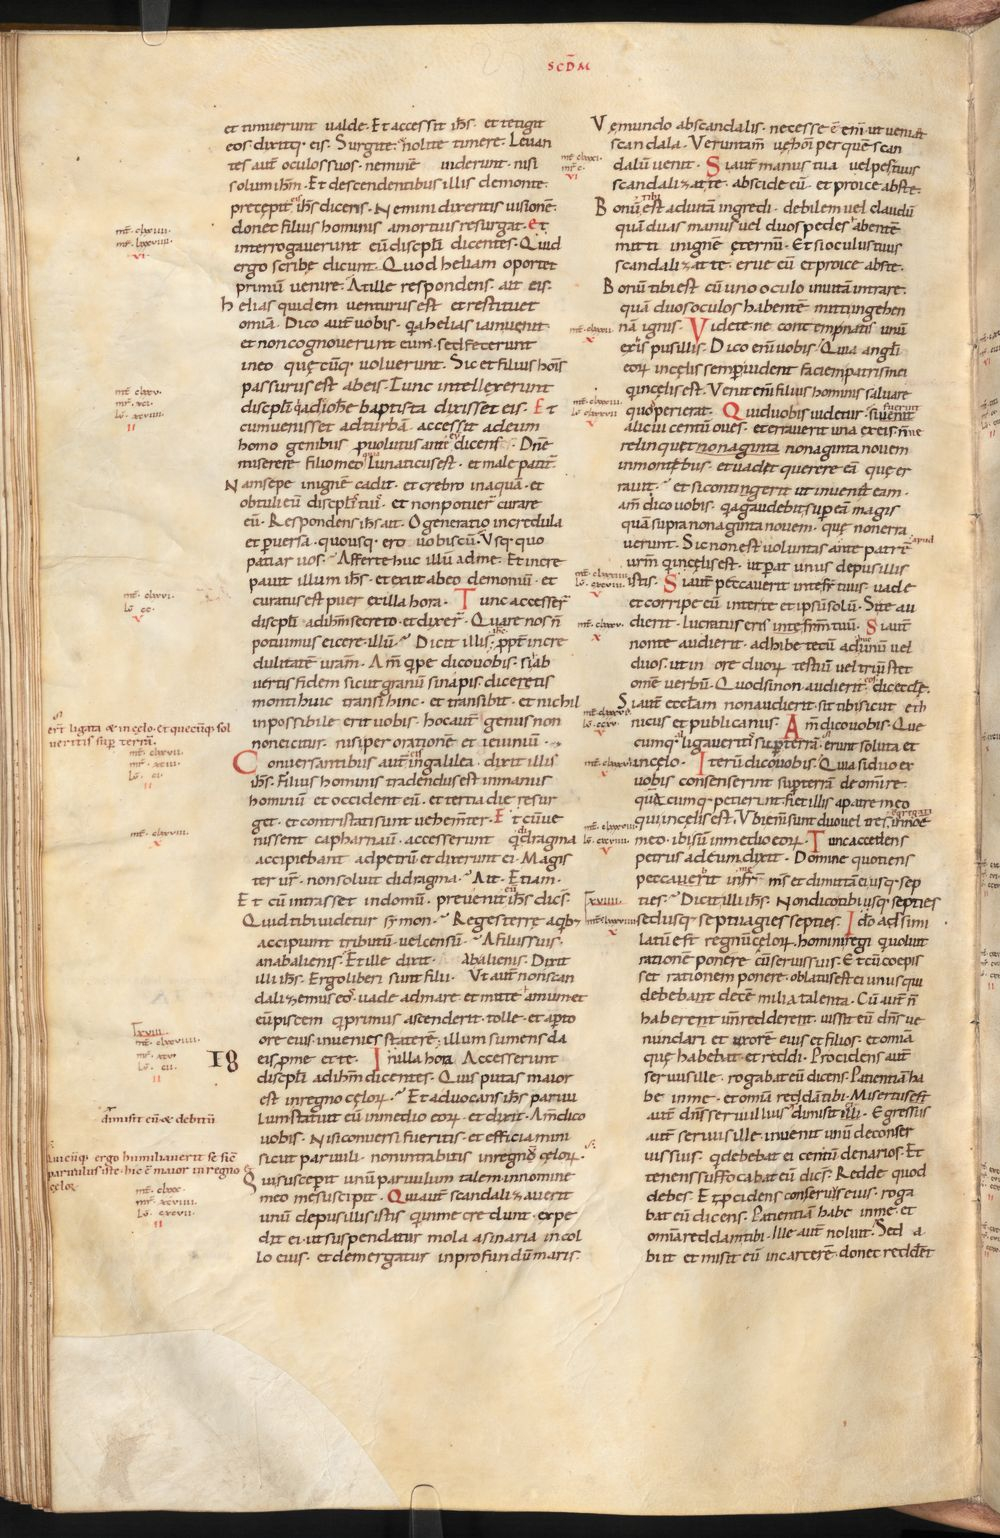 SCDM
et timuerunt ualde. Et accessit ihs. et tetigit
eos dixitq; eis. Surgite. nolite timere. Leuan
tes aut oculos suos. neminē uiderunt. nisi
solum ihm. Et descendentibus illis de monte.
precepit eis ihs dicens. Nemini dixeritis uisionē.
donec filius hominis amortuis resurgat. Et
interrogauerunt eū discpli dicentes. Quid
ergo scribę dicunt. Quod heliam oportet
primū uenire. At ille respondens. ait eis.
helias quidem uenturus est et restituet
omia. Dico aut uobis. qa helias iam uenit
et non cognouerunt eum. sed fecerunt
in eo quęcūq; uoluerunt. Sic et filius hois
passurus est ab eis. Tunc intellexerunt
discpli qa dioħe baptista dixisset eis. Et
cum uenisset ad turbā. accessit ad eum
homo genibus puolutus ante eū dicens. Dne
miserere filio meo quia lunaticus est. et male patit.
Nam sepe in ignē cadit. et crebro in aquā. et
obtuli eū discplis tuis. et non potuer curare
eū. Respondens ihs ait. O generatio incredula
et puersa. quousq; ero uobiscū. Vsq; quo
patiar uos. Afferte huc illū ad me. Et incre
pauit illum ihs. et exiit ab eo demoniū. et
curatus est puer ex illa hora. Tunc accesser
discpli ad ihm secreto. et dixer. Quare nos ñ
potuimus eicere illū. Dicit illis ihc. ppt incre
dulitatē uram. Am qipe dico uobis. si hab
uertis fidem sicut granū sinapis. diceretis
monti huic transi hinc. et transibit. et nichil
inpossibile erit uobis. hoc aut genus non
non eicitur. nisi per orationē et ieiuniū.
Conuersantibus aut eis in galilea. dixit illis
ihs. Filius hominis tradendus est in manus
hominū et occident eū. et tertia die resur
get. et contristati sunt uehemter. Et cū ue
nissent capharnaū. accesserunt q didragma
accipiebant ad petrū et dixerunt ei. Magis
ter ur. non soluit didragma. Ait. Etiam.
Et cū intrasset in domū. preuenit eū ihs dics.
Quid tibi uidetur symon. Reges terrę a qib;
accipiunt tributū. uel censū. A filiis suis.
an ab alienis. Et ille dixit. Ab alienis. Dixit
illi ihs. Ergo liberi sunt filii. Ut aut non scan
daliz&emus eos. uade ad mare. et mitte amum et
eū piscem q primus ascenderit. tolle. et apto
ore eius. inuenies staterē; illum sumens da
eis p me et te. In illa hora. Accesserunt
discpli ad ihm dicentes. Quis putas maior
est in regno cęlor. Et aduocans ihs paruu
lum statuit eū in medio eor. et dixit. Am dico
uobis. Nisi conuersi fueritis. et efficiamini
sicut paruuli. non intrabitis in regnō cęlor.
Qui susceperit unū paruulum talem in nomine
meo me suscipit. Qui aut scandaliz&auerit
unū de pusillis istis. qi in me credunt. expe
dit ei. ut suspendatur mola asinaria in col
lo eius. et demergatur in profundum maris.
Vę mundo ab scandalis. necesse ē enī ut ueniāt
scandala. Veruntam uę hoi per quē scan
dalū uenit. Si aut manus tua uel pes tuus
scandaliz&at te. abscide eū. et proice abs te.
Bonū tibi est ad uitā ingredi. debilem uel claudū
quā duas manus uel duos pedes habentē
mitti in ignē ęternū. Et si oculus tuus
scandaliz&at te. erue eū et proice abs te.
Bonū tibi est cū uno oculo in uitā intrare.
quā duos oculos habentē mitti in gehen
nā ignis. Videte. ne contempnatis unū
ex his pusillis. Dico enī uobis. Quia angli
eor in cęlis semp uident faciem patris mei
qi in cęlis est. Venit eni filius hominis saluare
quod perierat. Quid uobis uidetur. si fuerint
alicui centū oues. et errauerit una ex eis. nne
relinquet nonaginta nonaginta nouem
in montibus. et uadet querere eā quę er
rauit. et si contingerit ut inueniat eam.
am dico uobis. qa gaudebit sup eā magis
quā supra nonaginta nouem. quę non erra
uerunt. Sic non est uoluntas ante patrē
urm qi in cęlis est. ut pereat unus de pusillis
istis. Si aut peccauerit in te fr tuus. uade
et corripe eū inter te et ipsū solū. Si te au
dierit. lucratus eris frm tuū. Si aut
non te audierit. adhibe tecū adhuc unū uel
duos. ut in ore duor testiū uel triū stet
ome uerbū. Quod si non audierit eos dic ęcclę.
Si aut ęcclam non audierit. sit tibi sicut eth
nicus et publicanus. Am dico uobis. Quę
cumq; alligaueritis sup terrā. erunt soluta et
in cęlo. Iterū dico uobis. Quia si duo ex
uobis consenserint sup terrā de omi re.
quācumq; petierint. fiet illis a patre meo
qui in cęlis est. Vbi eni sunt duo uel tres congregati in noīe
meo. ibi sū in medio eor. Tunc accedens
petrus ad eum dixit. Domine quotiens
peccauerit in me fr ms et dimittā ei usq; sep
ties. Dicit illi ihs. Non dico tibi usq; septies
sed usq; septuagies septies. Ido adsimi
latū est regnū cęlor. homini regi qi uoluit
rationē ponere cū seruis suis. Et cū coepis
set rationem ponere. oblatus est ei unus qui
debebat decē milia talenta. Cū aut ñ
haberent un redderent. iussit eū dns ue
nundari et uxorē eius et filios. et omia
quę habebat. et reddi. Procidens aut
seruus ille. rogabat eū dicens. Patientiā ha
be in me. et omia reddā tibi. Misertus est
aut dns serui illius dimisit illi. Egressus
aut seruus ille. inuenit unū de conser
uis suis. qi debebat ei centū denarios. Et
tenens suffocabat eū dics. Redde quod
debes. Et pcidens conseruus eius. roga
bat eū dicens. Patientiā habe in me. et
omia reddam tibi. Ille aut noluit. Sed a
biit et misit eū in carcerē. donec reddēt
ert ligata & in cęlo. et quecūq; sol
ueritis sup terrā.
18
dimisit eū & debitū
Quicūq; ergo humiliauerit se sic
paruulus iste. hic ē maior in regno
cęlor